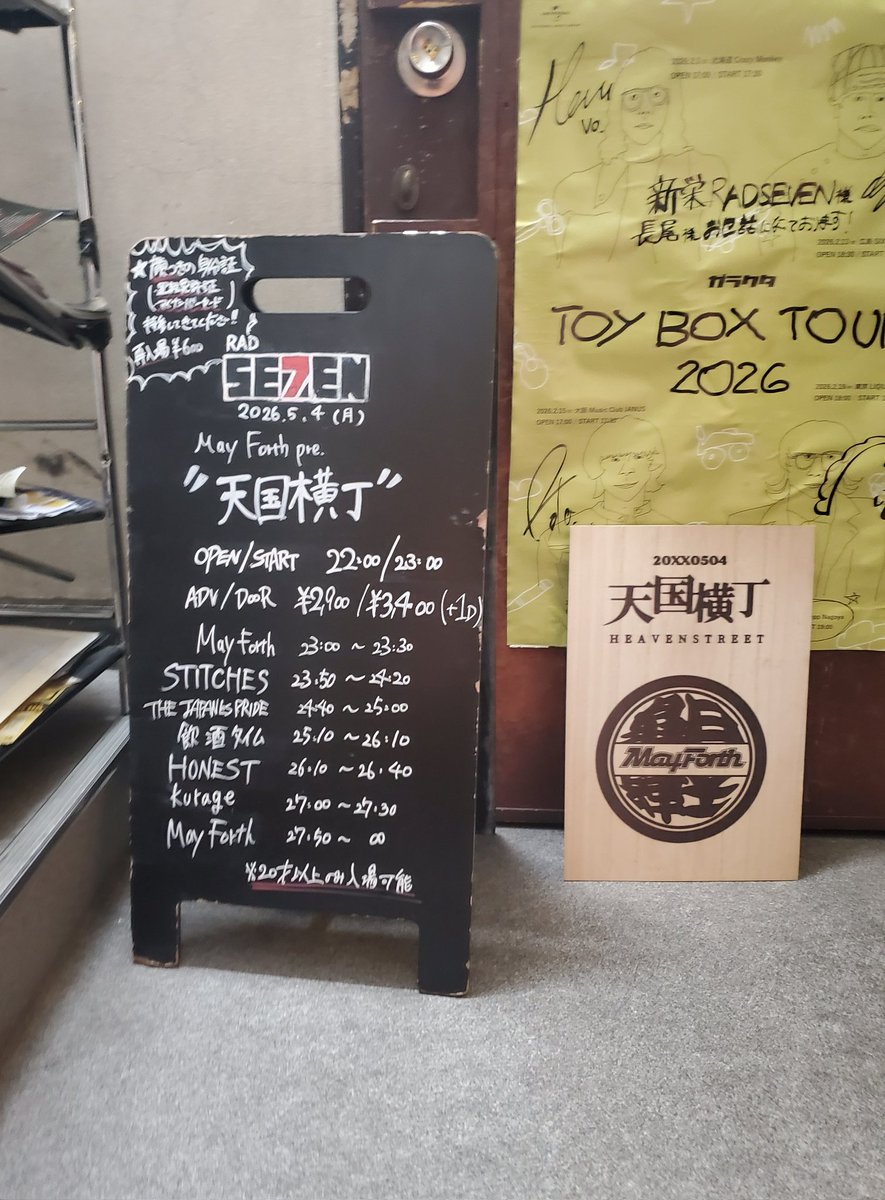 ★顔つきの身分証
持参してきてください!
再入場¥600
RAD
SE7EN
2026.5.4(月)
May Forth pre.
"天国横丁"
OPEN/START 22:00/23:00
ADV/DOOR ¥2,900/¥3,400(+1D)
May Forth 23:00~23:30
STITCHES 23:50~24:20
THE JAPANESPRIDE 24:40~25:00
飲酒タイム 25:10~26:10
HONEST 26:10~26:40
Kurage 27:00~27:30
May Forth 27:50~∞
※20才以上のみ入場可能
OPEN 17:00 / START 17:30
Vo.
新栄RADSEVEN様
長尾様お世話になっております!
ガラクタ
TOY BOX TOU
2026
大阪 Music Club JANUS
20XX0504
天国横丁
HEAVENSTREET
MayForth